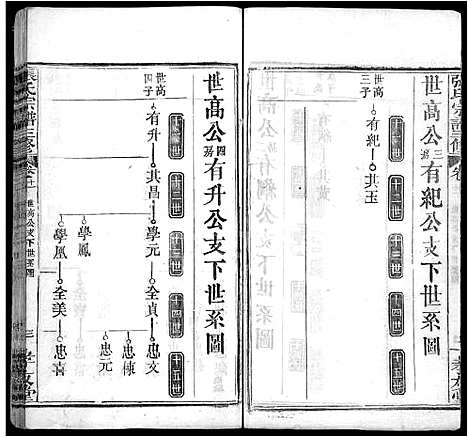 世高公三房有紀公支下世系圖
十一世
十二世
十三世
十四世
十五世
世高
三子
有紀
其玉
世高公四房有升公支下世系圖
十一世
十二世
十三世
十四世
十五世
世高
四子
有升
其昌
學元
全貞
忠文
忠倲
忠元
學鳳
學凰
全美
忠喜
張氏宗譜三修
世高公支下世系圖
孝友堂